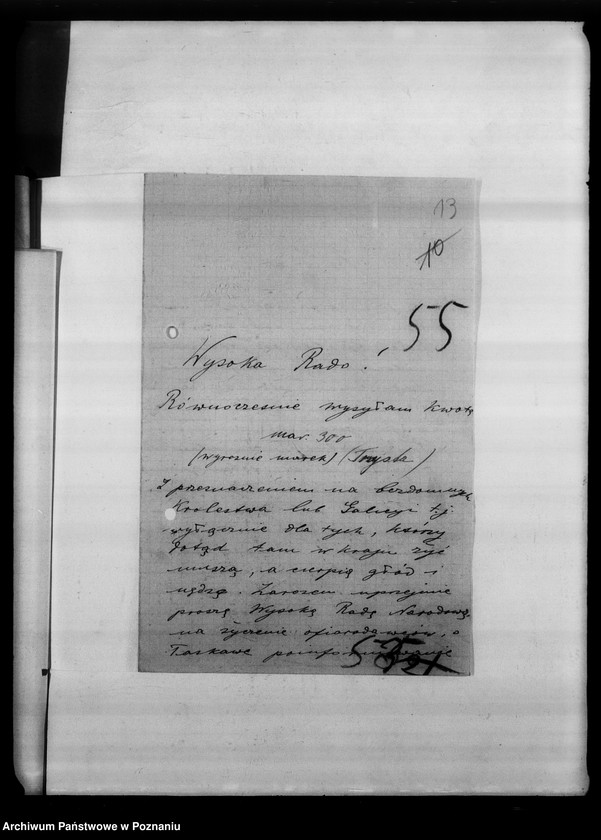 13
10
55
Wysoka Rado!
Równocześnie wysyłam kwotę
mar. 300
(wyraźnie marek) (Trzysta)
z przeznaczeniem na bezdomnych
Królestwa lub Galicyi t.j.
wyłącznie dla tych, którzy
dotąd tam w kraju żyć
muszą, a cierpią głód i
nędzę. Zarazem uprzejmie
proszę Wysoką Radę Narodową
na życzenie ofiarodawców, o
łaskawe
Archiwum Państwowe w Poznaniu